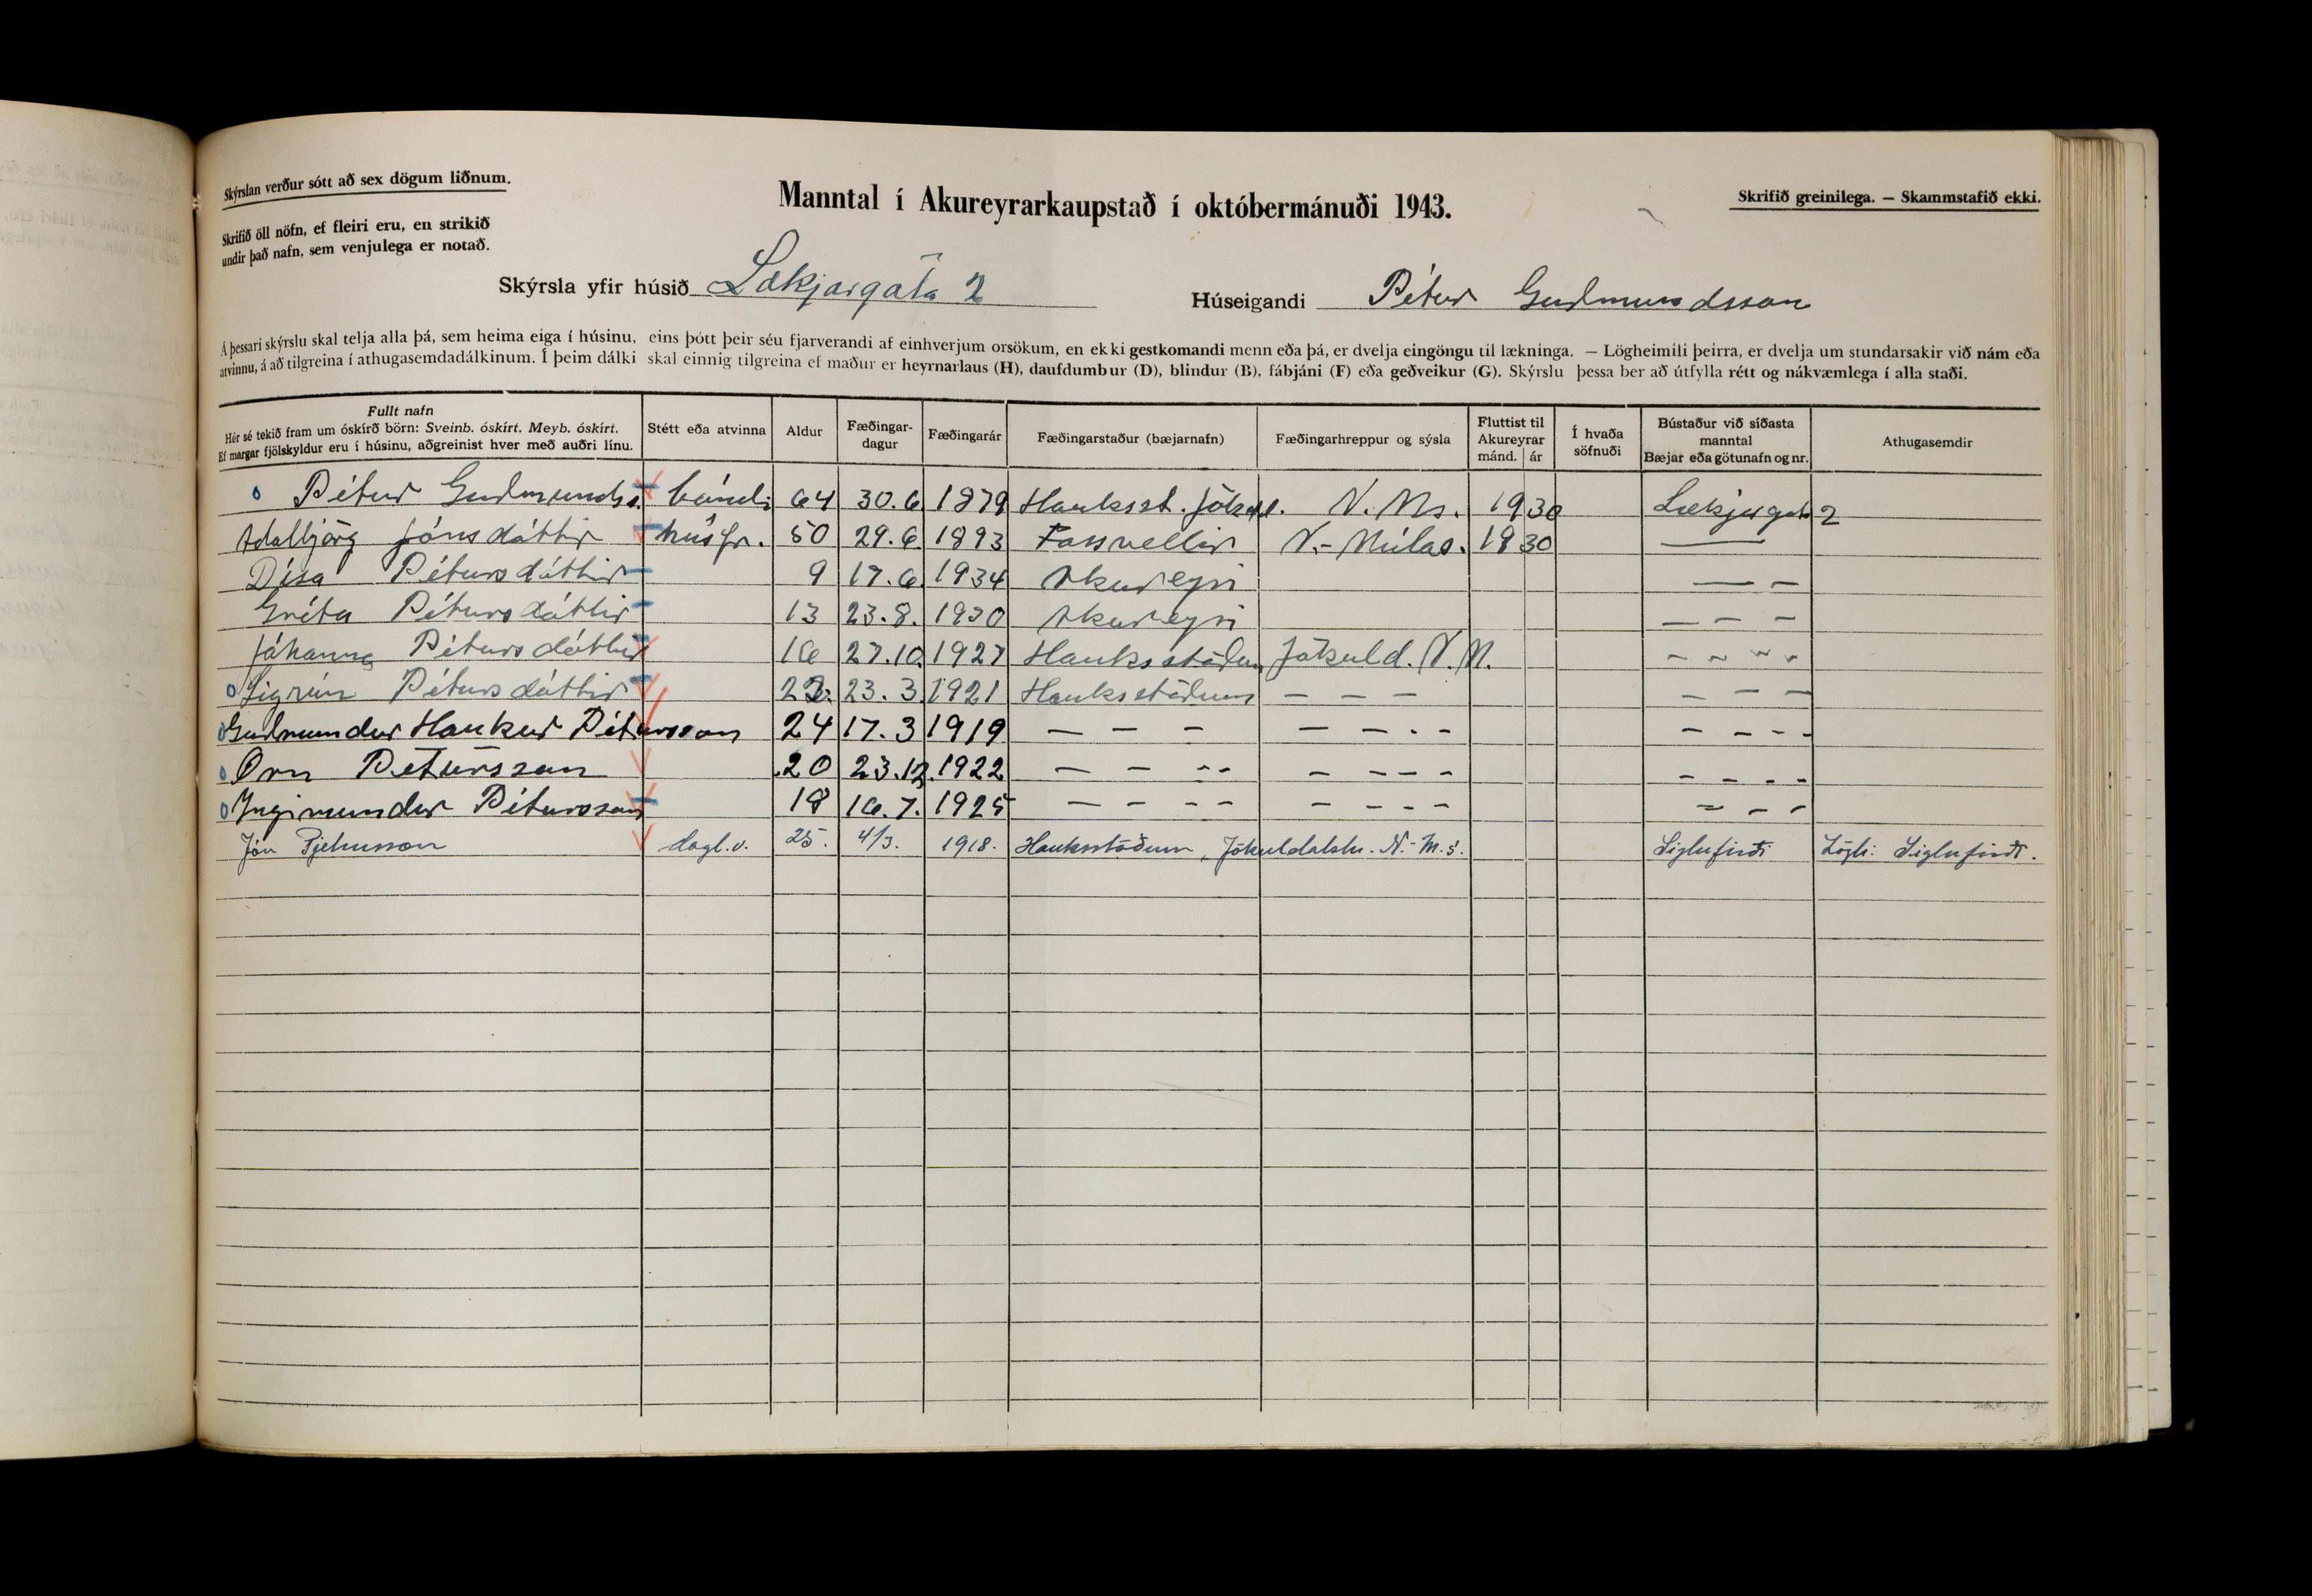 Skýrslan verður sótt að sex dögum liðnum.
Manntal í Akureyrarkaupstað í októbermánuði 1943.
Skrifið greinilega. — Skammstafið ekki.
Skrifið öll nöfn, ef fleiri eru, en strikið
undir það nafn, sem venjulega er notað.
Skýrsla yfir húsið Lækjargáta 2
Húseigandi Pétur Guðmundsson
Á þessari skýrslu skal telja alla þá, sem heima eiga í húsinu, eins þótt þeir séu fjarverandi af einhverjum orsökum, en ekki gestkomandi menn eða þá, er dvelja eingöngu til lækninga. — Lögheimili þeirra, er dvelja um stundarsakir við nám eða
atvinnu, á að tilgreina í athugasemdadálkinum. Í þeim dálki skal einnig tilgreina ef maður er heyrnarlaus (H), daufdumbur (D), blindur (B), fábjáni (F) eða geðveikur (G). Skýrslu þessa ber að útfylla rétt og nákvæmlega í alla staði.
Fullt nafn
Hér sé tekið fram um óskírð börn: Sveinb. óskírt. Meyb. óskírt.
Ef margar fjölskyldur eru í húsinu, aðgreinist hver með auðri línu.
Stétt eða atvinna
Aldur
Fæðingar-
dagur
Fæðingarár
Fæðingarstaður (bæjarnafn)
Fæðingarhreppur og sýsla
Fluttist til
Akureyrar
mánd. ár
Í hvaða
söfnuði
Bústaður við síðasta
manntal
Bæjar eða götunafn og nr.
Athugasemdir
Pétur Guðmundss. bóndi 64 30.6 1879 Hauksst. Jökuld. N. Ms. 1930 Lækjargata 2
Aðalbjörg Jónsdóttir húsfr. 50 29.6. 1893 Fossvellir N.-Múlas. 1930 —
Dísa Pétursdóttir 9 17.6. 1934 Akureyri — —
Gréta Pétursdóttir 13 23.8. 1930 Akureyri — — —
Jóhanna Pétursdóttir 16 27.10. 1927 Hauksstöðum Jökuld. N. M. - - - -
Sigrún Pétursdóttir 22 23.3. 1921 Hauksstöðum — — — — — —
Guðmundur Haukur Pétursson 24 17.3 1919 — — — — — - - — — - -
Örn Pétursson 20 23.12. 1922 — — - - — - - - - - - -
Ingimundur Pétursson 18 16.7. 1925 — — - - — - - - - - -
Jón Pjetursson dagl.v. 25. 4/3. 1918. Hauksstöðum, Jökuldalshr. N.-M.s. Siglufirði Lögh: Siglufirði.